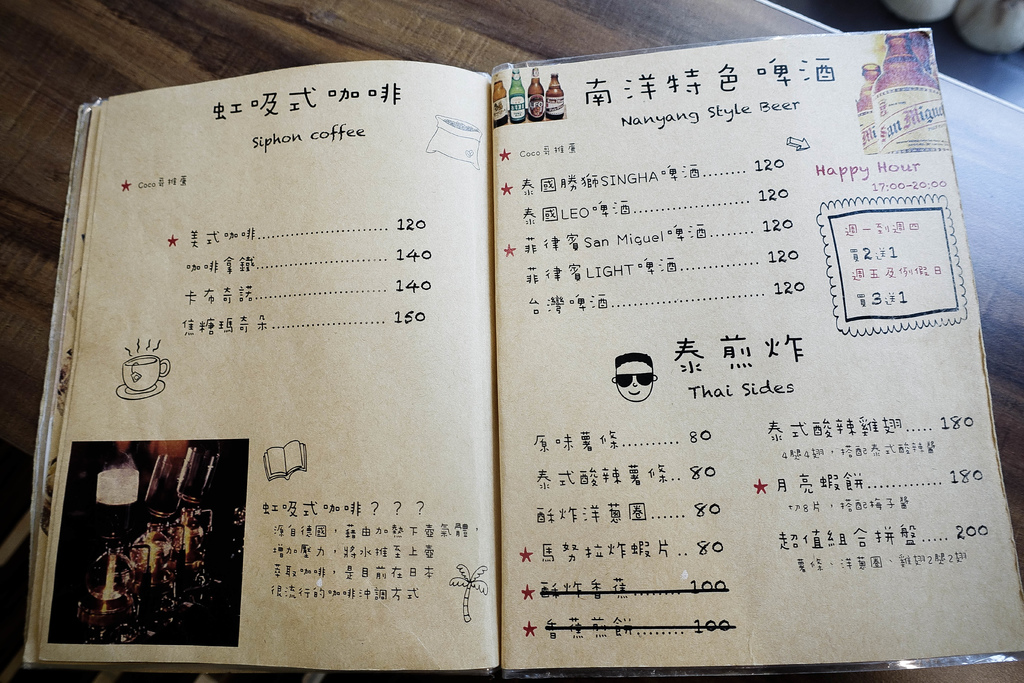 虹吸式咖啡
Siphon coffee
Coco哥推薦
美式咖啡.................... 120
咖啡拿鐵.................... 140
卡布奇諾.................... 140
焦糖瑪奇朵.................. 150
虹吸式咖啡？？？
源自德國，藉由加熱下壺氣體，
增加壓力，將水推至上壺
萃取咖啡，是目前在日本
很流行的咖啡沖調方式
南洋特色啤酒
Nanyang Style Beer
Coco哥推薦
泰國勝獅SINGHA啤酒........ 120
泰國LEO啤酒.................... 120
菲律賓San Miguel啤酒........ 120
菲律賓LIGHT啤酒............. 120
台灣啤酒........................ 120
San Miguel
Happy Hour
17:00-20:00
週一到週四
買2送1
週五及例假日
買3送1
泰煎炸
Thai Sides
原味薯條.......... 80
泰式酸辣薯條.. 80
酥炸洋蔥圈...... 80
馬努拉炸蝦片.. 80
酥炸香蕉.......... 100
香蕉煎餅........ 100
泰式酸辣雞翅..... 180
4腿4翅，搭配泰式酸辣醬
月亮蝦餅............. 180
切8片，搭配梅子醬
超值組合拼盤..... 200
薯條、洋蔥圈、雞翅2腿2翅